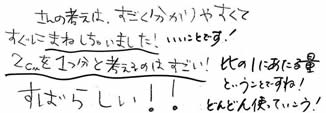 さんの考えは、すごく分かりやすくて
すぐにまねしちゃいました! いいことです!
2cmを1つ分と考えるのはすごい! 比の1にあたる量
ということですね!
すばらしい!! どんどん使っていこう!